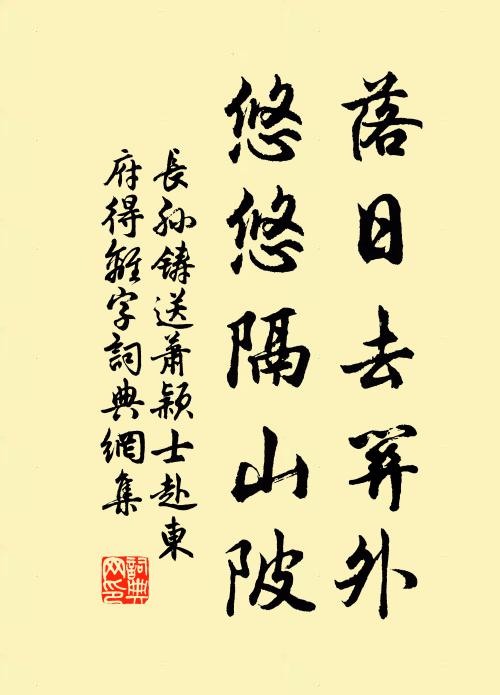 落日去關外
悠悠隔山陂
長孫鑄送蕭穎士赴東
府得離字詞典網集
詞典
网印